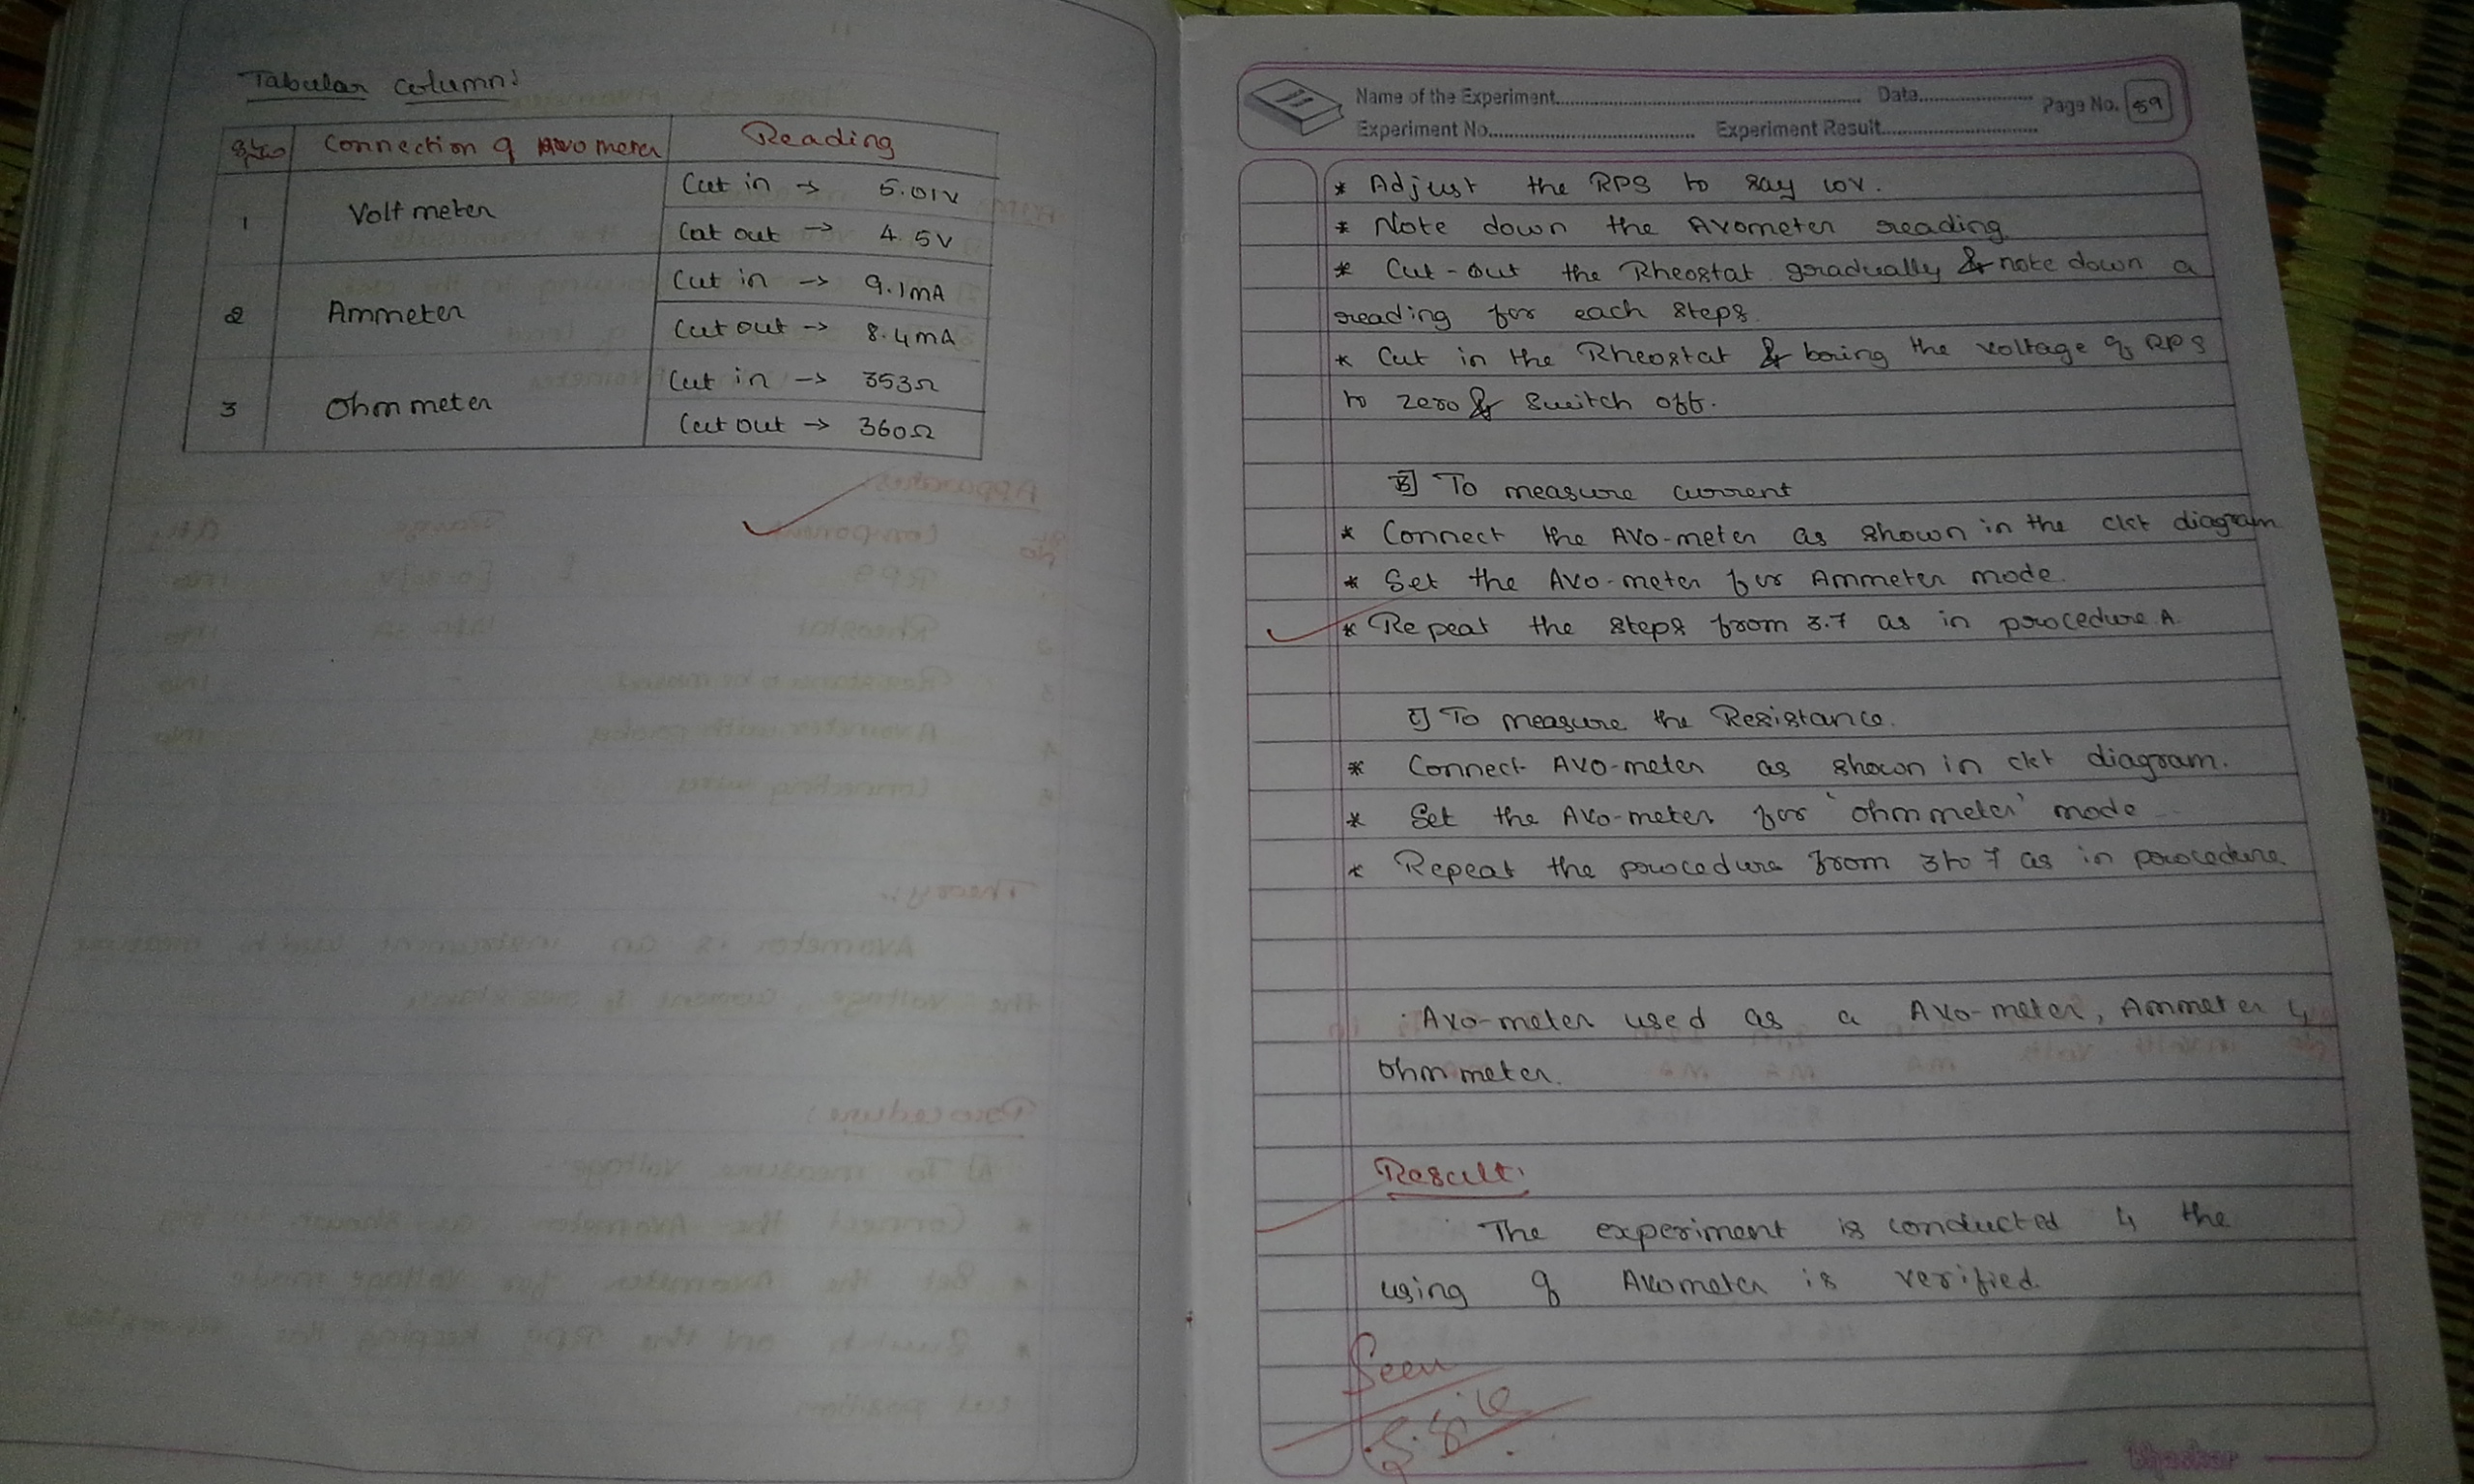 Tabular column:
Connection of Avo meter Reading
1 Volt meter Cut in → 5.01V
Cut out → 4.5V
2 Ammeter Cut in → 9.1mA
Cut out → 8.4mA
3 Ohm meter Cut in → 353Ω
Cut out → 360Ω
Name of the Experiment Date Page No. 59
Experiment No. Experiment Result
* Adjust the RPS to say 10V.
* Note down the Avometer reading
* Cut-out the Rheostat gradually & note down a
reading for each steps.
* Cut in the Rheostat & bring the voltage of RPS
to zero & switch off.
B] To measure current
* Connect the Avo-meter as shown in the ckt diagram
* Set the Avo-meter for Ammeter mode.
* Repeat the steps from 3.7 as in procedure A.
C] To measure the Resistance.
* Connect Avo-meter as shown in ckt diagram.
* Set the Avo-meter for 'ohmmeter' mode
* Repeat the procedure from 3 to 7 as in procedure
Avo-meter used as a Avo-meter, Ammeter &
Ohm meter.
Result:
The experiment is conducted & the
using of Avometer is verified.
Seen
Bhaskar